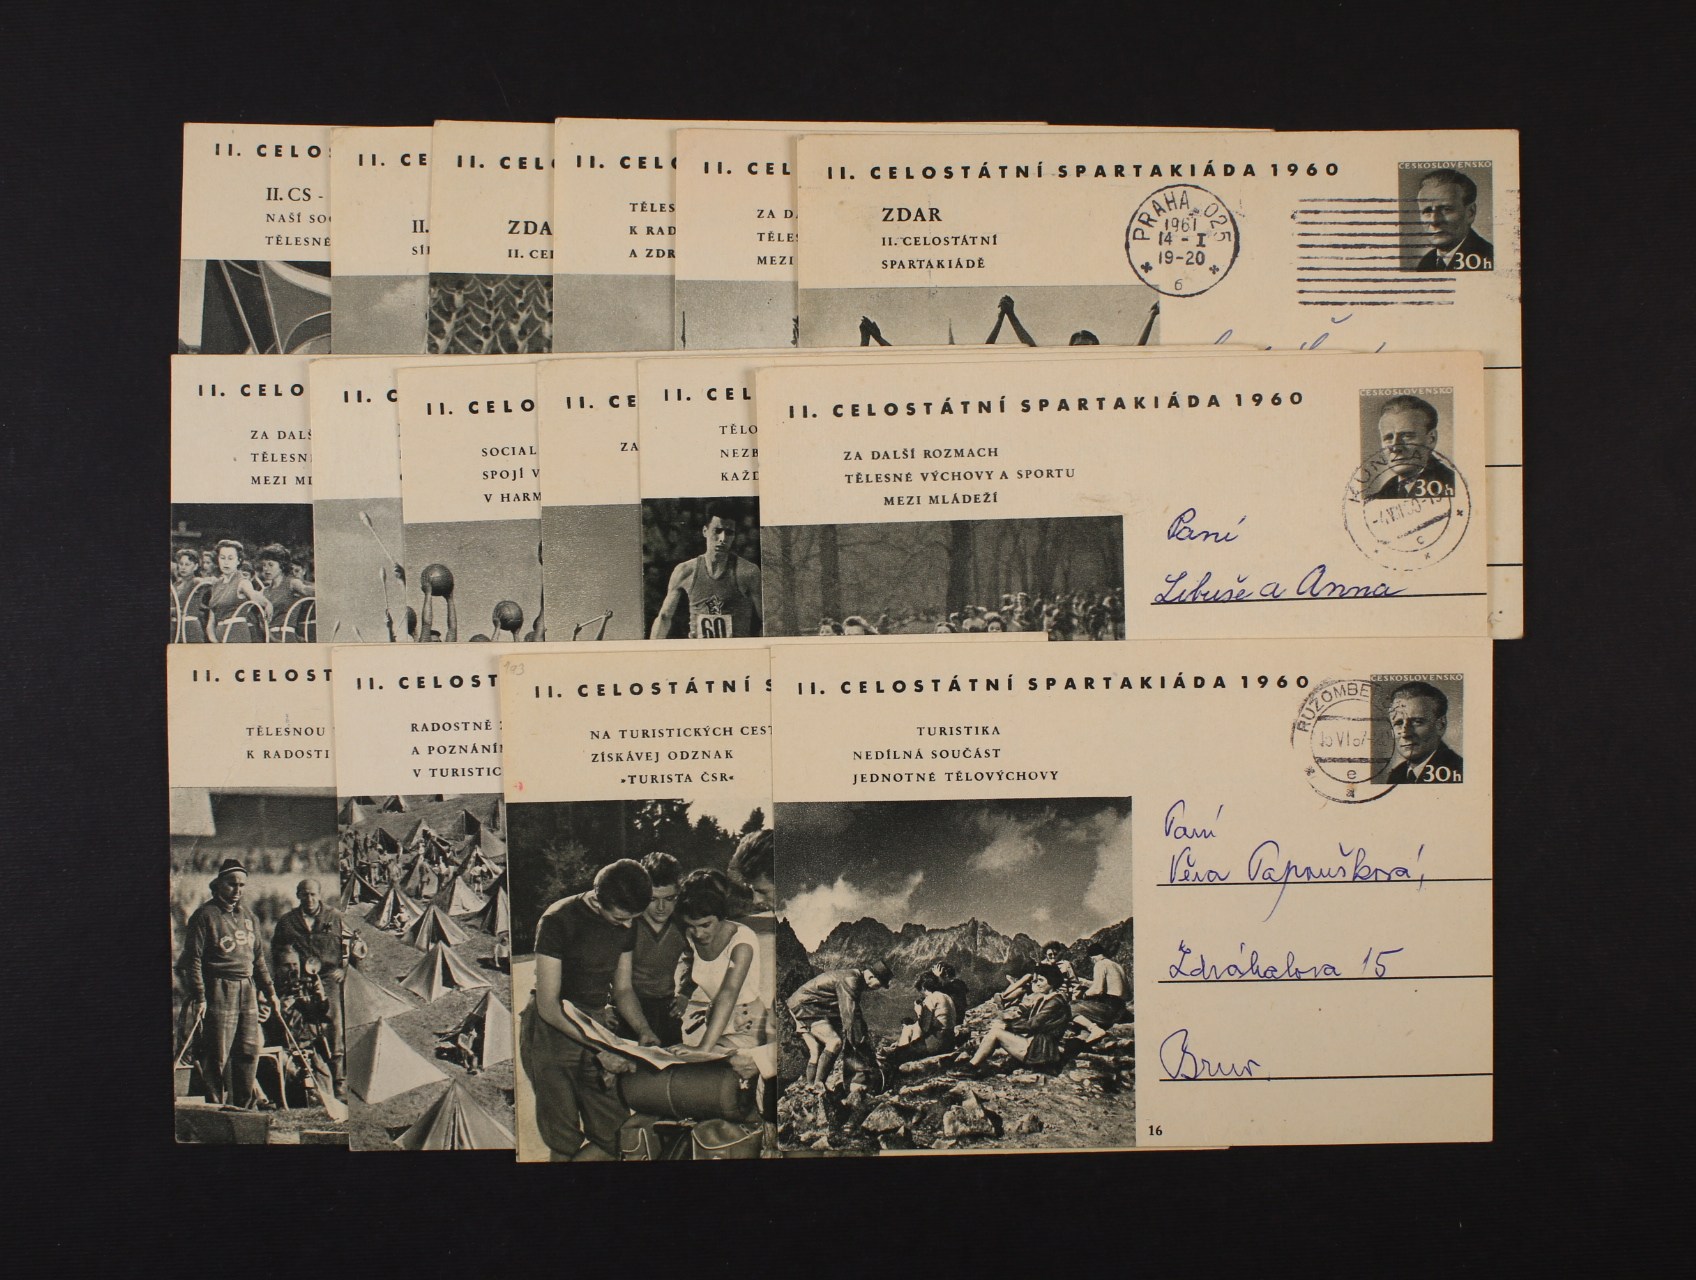 II. CELO
II. CS -
NAŠÍ SO
TĚLESNÉ
II. CE
II.
SÍ
II. CEL
ZDA
II. CE
II. CEL
TĚLES
K RAD
A ZDR
II. CEL
ZA D
TĚLES
MEZI
II. CELOSTÁTNÍ SPARTAKIÁDA 1960
ZDAR
II. CELOSTÁTNÍ
SPARTAKIÁDĚ
PRAHA 025
1961
14 - I
19-20
6
ČESKOSLOVENSKO
30h
II. CELO
ZA DALŠ
TĚLESN
MEZI ML
II. C
II. CELO
SOCIAL
SPOJÍ V
V HARM
II. CE
ZA
II. CEL
TĚLO
NEZB
KAŽD
60
II. CELOSTÁTNÍ SPARTAKIÁDA 1960
ZA DALŠÍ ROZMACH
TĚLESNÉ VÝCHOVY A SPORTU
MEZI MLÁDEŽÍ
ČESKOSLOVENSKO
30h
c
Paní
Libuše a Anna
II. CELOST
TĚLESNOU
K RADOSTI
ČS
II. CELOST
RADOSTNĚ
A POZNÁN
V TURISTIC
193
II. CELOSTÁTNÍ S
NA TURISTICKÝCH CEST
ZÍSKÁVEJ ODZNAK
»TURISTA ČSR«
II. CELOSTÁTNÍ SPARTAKIÁDA 1960
TURISTIKA
NEDÍLNÁ SOUČÁST
JEDNOTNÉ TĚLOVÝCHOVY
RUŽOMBEROK
e
ČESKOSLOVENSKO
30h
Paní
Věra Papoušková,
Zdráhalova 15
Brno
16